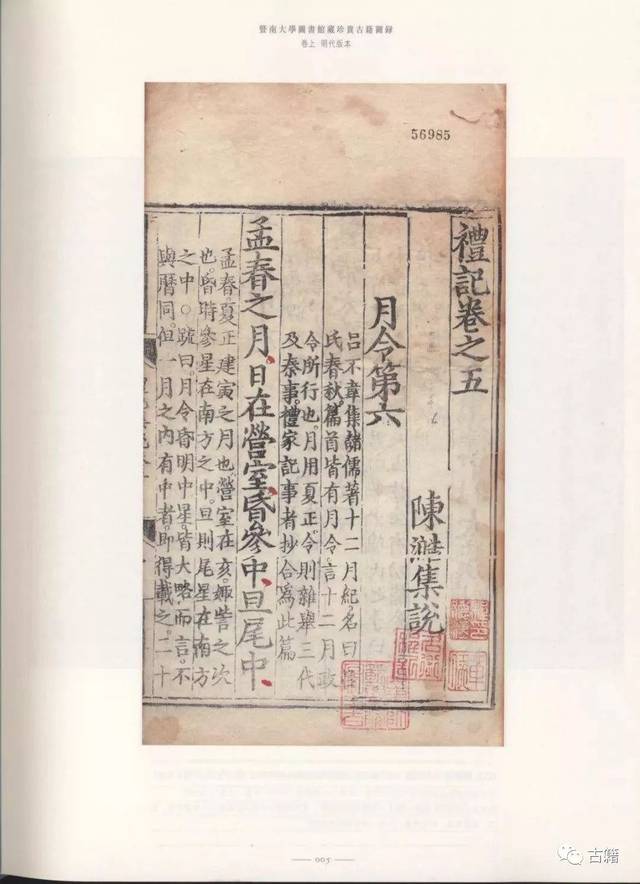 暨南大學圖書館藏珍貴古籍圖錄
卷上 明代版本
56985
禮記卷之五
陳澔集說
月令第六
呂不韋集諸儒著十二月紀名曰呂
氏春秋篇首皆有月令言十二月政
令所行也月用夏正令則雜舉三代
及秦事禮家記事者抄合爲此篇
孟春之月日在營室昏參中旦尾中
孟春夏正建寅之月也營室在亥娵訾之次
也昏時參星在南方之中旦則尾星在南方
之中○疏曰月令昏明中星皆大略而言不
與曆同但一月之內有中者即得載之二十
005
古籍